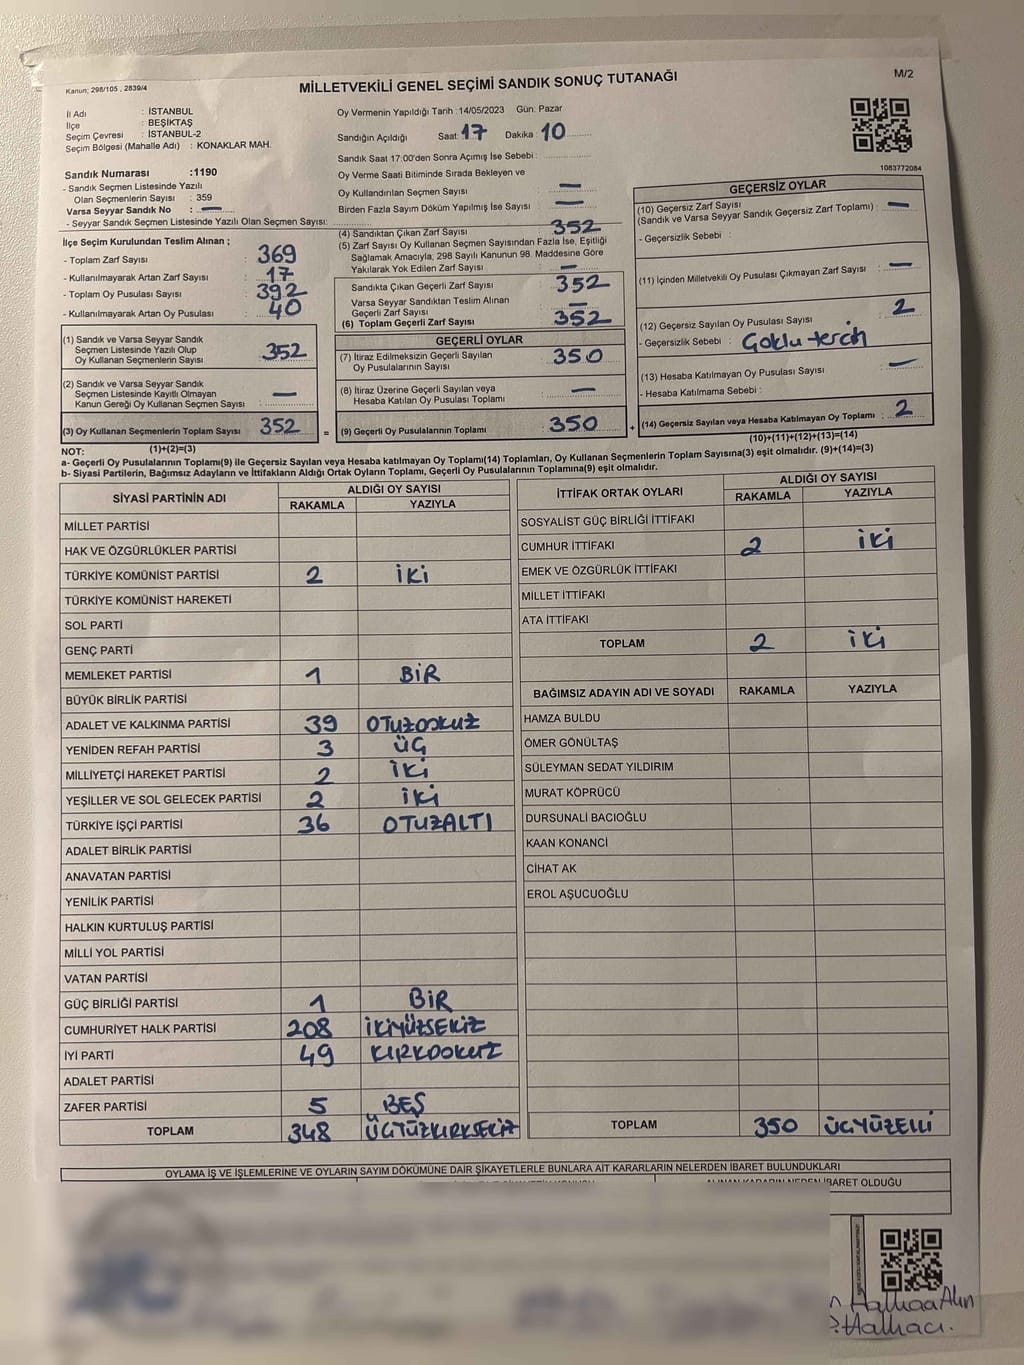 Kanun: 298/105 , 2839/4
MİLLETVEKİLİ GENEL SEÇİMİ SANDIK SONUÇ TUTANAĞI
M/2
İl Adı : İSTANBUL
İlçe : BEŞİKTAŞ
Seçim Çevresi : İSTANBUL-2
Seçim Bölgesi (Mahalle Adı) : KONAKLAR MAH.
Sandık Numarası :1190
- Sandık Seçmen Listesinde Yazılı
Olan Seçmenlerin Sayısı : 359
Varsa Seyyar Sandık No : —
- Seyyar Sandık Seçmen Listesinde Yazılı Olan Seçmen Sayısı:
İlçe Seçim Kurulundan Teslim Alınan ;
- Toplam Zarf Sayısı : 369
- Kullanılmayarak Artan Zarf Sayısı : 17
- Toplam Oy Pusulası Sayısı : 392
- Kullanılmayarak Artan Oy Pusulası : 40
(1) Sandık ve Varsa Seyyar Sandık
Seçmen Listesinde Yazılı Olup
Oy Kullanan Seçmenlerin Sayısı : 352
(2) Sandık ve Varsa Seyyar Sandık
Seçmen Listesinde Kayıtlı Olmayan
Kanun Gereği Oy Kullanan Seçmen Sayısı : —
(3) Oy Kullanan Seçmenlerin Toplam Sayısı : 352
(1)+(2)=(3)
Oy Vermenin Yapıldığı Tarih :14/05/2023 Gün: Pazar
Sandığın Açıldığı Saat: 17 Dakika: 10
Sandık Saat 17:00'den Sonra Açımış İse Sebebi :
Oy Verme Saati Bitiminde Sırada Bekleyen ve
Oy Kullandırılan Seçmen Sayısı : —
Birden Fazla Sayım Döküm Yapılmış İse Sayısı : —
(4) Sandıktan Çıkan Zarf Sayısı : 352
(5) Zarf Sayısı Oy Kullanan Seçmen Sayısından Fazla İse, Eşitliği
Sağlamak Amacıyla, 298 Sayılı Kanunun 98. Maddesine Göre
Yakılarak Yok Edilen Zarf Sayısı : —
Sandıkta Çıkan Geçerli Zarf Sayısı : 352
Varsa Seyyar Sandıktan Teslim Alınan
Geçerli Zarf Sayısı : —
(6) Toplam Geçerli Zarf Sayısı : 352
GEÇERLİ OYLAR
(7) İtiraz Edilmeksizin Geçerli Sayılan
Oy Pusulalarının Sayısı : 350
(8) İtiraz Üzerine Geçerli Sayılan veya
Hesaba Katılan Oy Pusulası Toplamı : —
= (9) Geçerli Oy Pusulalarının Toplamı : 350 +
1083772084
GEÇERSİZ OYLAR
(10) Geçersiz Zarf Sayısı
(Sandık ve Varsa Seyyar Sandık Geçersiz Zarf Toplamı) : —
- Geçersizlik Sebebi :
(11) İçinden Milletvekili Oy Pusulası Çıkmayan Zarf Sayısı : —
(12) Geçersiz Sayılan Oy Pusulası Sayısı : 2
- Geçersizlik Sebebi : Çoklu tercih
(13) Hesaba Katılmayan Oy Pusulası Sayısı : —
- Hesaba Katılmama Sebebi :
(14) Geçersiz Sayılan veya Hesaba Katılmayan Oy Toplamı : 2
(10)+(11)+(12)+(13)=(14)
NOT:
a- Geçerli Oy Pusulalarının Toplamı(9) ile Geçersiz Sayılan veya Hesaba katılmayan Oy Toplamı(14) Toplamları, Oy Kullanan Seçmenlerin Toplam Sayısına(3) eşit olmalıdır. (9)+(14)=(3)
b- Siyasi Partilerin, Bağımsız Adayların ve İttifakların Aldığı Ortak Oyların Toplamı, Geçerli Oy Pusulalarının Toplamına(9) eşit olmalıdır.
SİYASİ PARTİNİN ADI
ALDIĞI OY SAYISI
RAKAMLA YAZIYLA
MİLLET PARTİSİ
HAK VE ÖZGÜRLÜKLER PARTİSİ
TÜRKİYE KOMÜNİST PARTİSİ 2 İKİ
TÜRKİYE KOMÜNİST HAREKETİ
SOL PARTİ
GENÇ PARTİ
MEMLEKET PARTİSİ 1 BİR
BÜYÜK BİRLİK PARTİSİ
ADALET VE KALKINMA PARTİSİ 39 OTUZDOKUZ
YENİDEN REFAH PARTİSİ 3 ÜÇ
MİLLİYETÇİ HAREKET PARTİSİ 2 İKİ
YEŞİLLER VE SOL GELECEK PARTİSİ 2 İKİ
TÜRKİYE İŞÇİ PARTİSİ 36 OTUZALTI
ADALET BİRLİK PARTİSİ
ANAVATAN PARTİSİ
YENİLİK PARTİSİ
HALKIN KURTULUŞ PARTİSİ
MİLLİ YOL PARTİSİ
VATAN PARTİSİ
GÜÇ BİRLİĞİ PARTİSİ 1 BİR
CUMHURİYET HALK PARTİSİ 208 İKİYÜZSEKİZ
İYİ PARTİ 49 KIRKDOKUZ
ADALET PARTİSİ
ZAFER PARTİSİ 5 BEŞ
TOPLAM 348 ÜÇYÜZKIRKSEKİZ
İTTİFAK ORTAK OYLARI
ALDIĞI OY SAYISI
RAKAMLA YAZIYLA
SOSYALİST GÜÇ BİRLİĞİ İTTİFAKI
CUMHUR İTTİFAKI 2 İKİ
EMEK VE ÖZGÜRLÜK İTTİFAKI
MİLLET İTTİFAKI
ATA İTTİFAKI
TOPLAM 2 İKİ
BAĞIMSIZ ADAYIN ADI VE SOYADI RAKAMLA YAZIYLA
HAMZA BULDU
ÖMER GÖNÜLTAŞ
SÜLEYMAN SEDAT YILDIRIM
MURAT KÖPRÜCÜ
DURSUNALİ BACIOĞLU
KAAN KONANCİ
CİHAT AK
EROL AŞUCUOĞLU
TOPLAM 350 ÜÇYÜZELLİ
OYLAMA İŞ VE İŞLEMLERİNE VE OYLARIN SAYIM DÖKÜMÜNE DAİR ŞİKAYETLERLE BUNLARA AİT KARARLARIN NELERDEN İBARET BULUNDUKLARI
ALINAN KARARIN NEDEN İBARET OLDUĞU